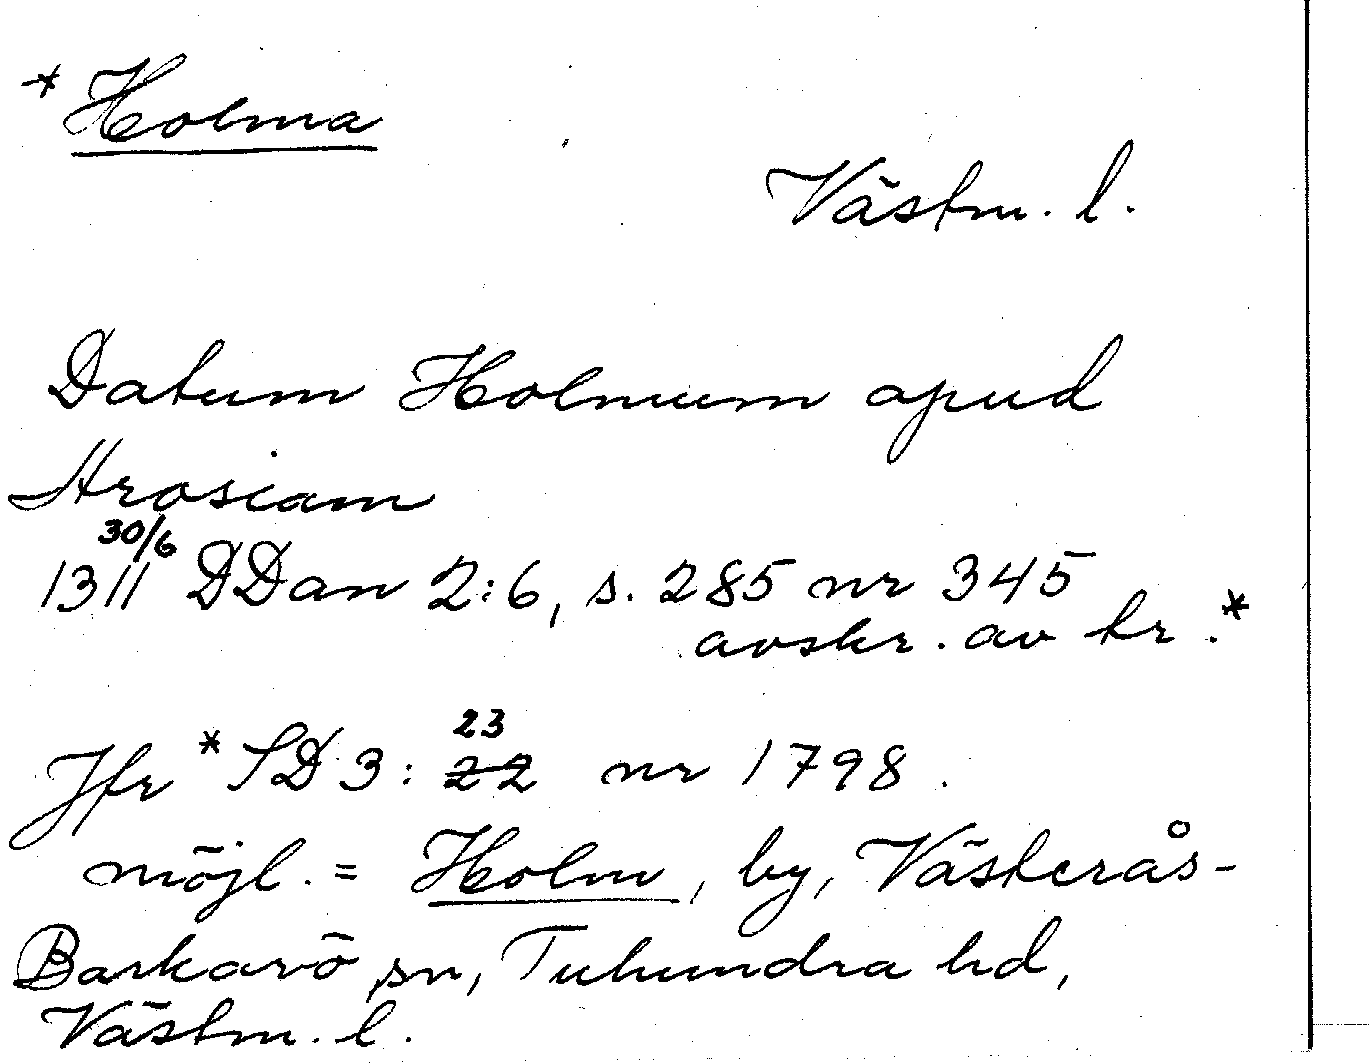 * Holma
Västm. l.
Datum Holmum apud
Arosiam
30/6
1311 DDan 2:6, s. 285 nr 345
avskr. av tr.*
23
Jfr *SD 3: 22 nr 1798.
möjl. = Holm, by, Västerås-
Barkarö sn, Tuhundra hd,
Västm. l.